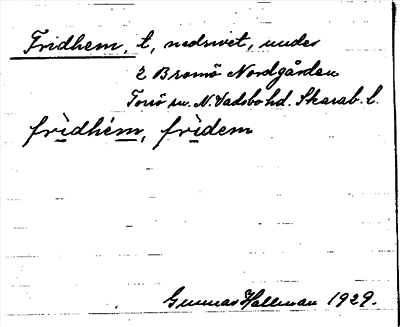 Fridhem, t, nedrivet, under
2 Bromö Nordgården
Torsö sn. N. Vadsbo hd. Skarab. l.
frìdhém, frìdem
Gunnar Hallman 1929.